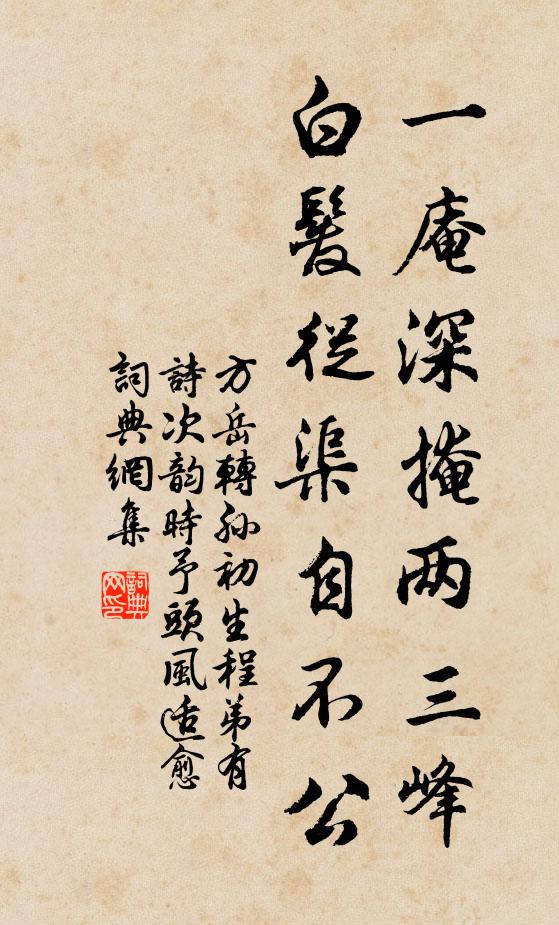 一庵深掩两三峰
白髮從渠自不公
方岳轉孙初生程弟有
詩次韵時予頭風适愈
詞典網集
詞典网印